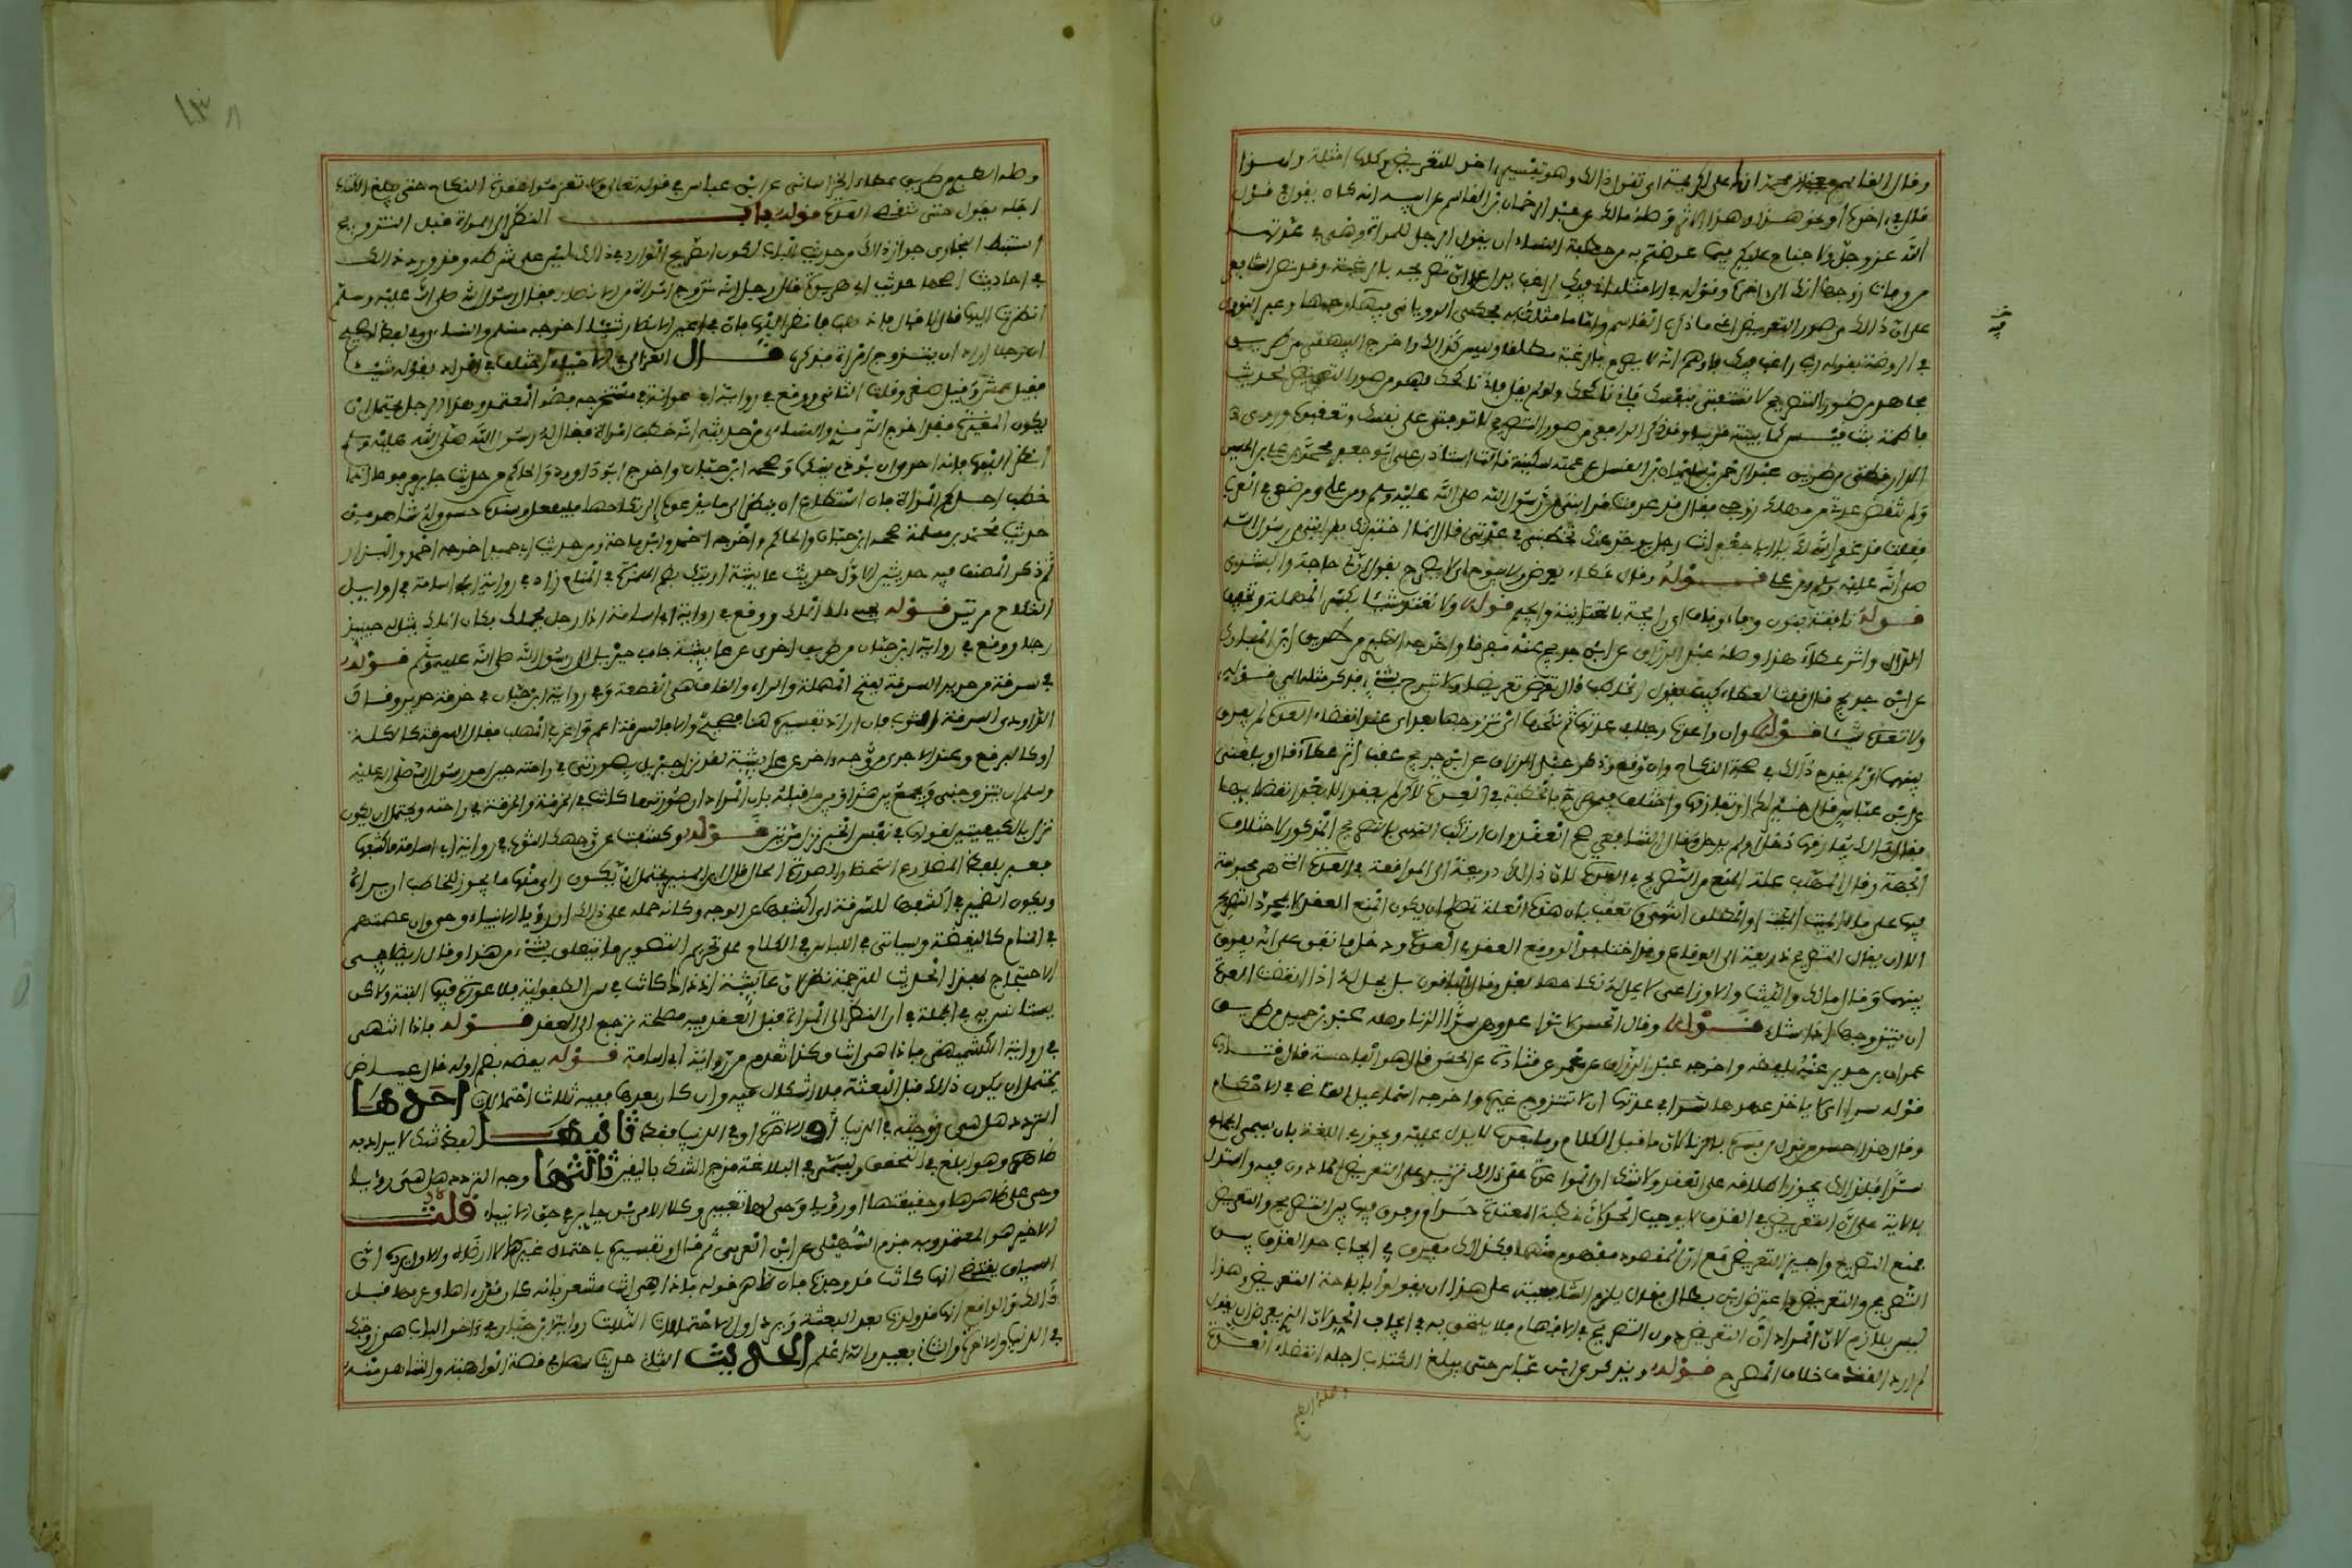 وقال القاسم يعني ابن محمد انك علي كريمة اي تقول ذلك وهو تفسير اخر للتعريض وكلها امثلة ولهذا
قال في اخره او نحو هذا وهذا الاثر وصله مالك عن عبد الرحمان بن القاسم عن ابيه انه كان يقول في قول
الله عز وجل ولا جناح عليكم فيما عرضتم به من خطبة النساء ان يقول الرجل للمرأة وهي في عدتها
من وفاة زوجها انك الى اخره وقوله في الامثلة اني فيك لراغب يدل على ان تصريحه بالرغبة
على ان ذلك من صور التعريض اعني ما ذكره القاسم واما ما مثلت به فحكى الروياني فيه وجها وعبر النووي
في الروضة بقوله رب راغب فيك فاوهم انه لا يصرح بالرغبة مطلقا وليس كذلك واخرج البيهقي من طريق
مجاهد من صور التصريح لا تسبقيني بنفسك فاني ناكحك ولو لم يقل فاني ناكحك فهو من صور التعريض لحديث
فاطمة بنت قيس كما بينته قريبا وقد ذكر الرافعي من صور التصريح لا تفوتي علي نفسك وتعقبوه وروى
الدارقطني من طريق عبد الرحمن بن سليمان بن الغسيل عن عمته سكينة قالت استاذن علي ابو جعفر محمد بن علي بن الحسين
ولم تنقض عدتي من مهلك زوجي فقال قد عرفت قرابتي من رسول الله صلى الله عليه وسلم ومن علي وموضعي في العرب
فقلت غفر الله لك يا ابا جعفر انت رجل يوخذ عنك تخطبني في عدتي قال انما اخبرتك بقرابتي من رسول الله
صلى الله عليه وسلم ومن علي قوله وقال عطاء يعرض ولا يبوح اي لا يصرح يقول ان لي حاجة وابشري
قوله نافقة بنون وفاء وقاف اي رايجة بالتحتانية والجيم قوله ولا تعد شيئا بكسر المهملة وتخفيف
الدال واثر عطاء هذا وصله عبد الرزاق عن ابن جريج عنه مفرقا واخرجه الطبري من طريق ابن المبارك
عن ابن جريج قال قلت لعطاء كيف يقول الخاطب قال يعرض تعريضا ولا يبوح بشيء فذكر مثله الى قوله
ولا تعد شيئا قوله وان واعدت رجلا في عدتها ثم نكحها اي تزوجها بعد اي عند انقضاء العدة لم يفرق
بينهما اي لم يقدح ذلك في صحة النكاح وان وقع وذكر عبد الرزاق عن ابن جريج عقب اثر عطاء قال وبلغني
عن ابن عباس قال خير لك ان تفارقها واختلف فيمن صرح بالخطبة في العدة لاكن لم يعقد الا بعد انقضائها
فقال مالك يفارقها دخل او لم يدخل وقال الشافعي صح العقد وان ارتكب النهي بالتصريح المذكور لاختلاف
الجهة وقال المهلب علة المنع من التصريح في العدة لان ذلك ذريعة الى المواقعة في العدة التي هي محبوسة
فيها على ماء الميت او المطلق انتهى وتعقب بان هذه العلة تصلح ان يكون المنع العقد لا مجرد التصريح
الا ان يقال التصريح ذريعة الى العقد والعقد ذريعة الى الوقاع وقد اختلفوا لو وقع العقد في العدة ودخل فاتفق على انه يفرق
بينهما وقال مالك والليث والاوزاعي لا يحل له نكاحها بعد وقال الباقون بل يحل له اذا انقضت العدة
ان يتزوجها اذا شاء قوله وقال الحسن لا تواعدوهن سرا الزنا وصله عبد بن حميد من طريق
عمران بن حدير عنه بلفظه واخرجه عبد الرزاق عن معمر عن قتادة عن الحسن قال هو الفاحشة قال قتادة
قوله سرا اي لا ياخذ عهدها سرا في عدتها ان لا تتزوج غيره واخرجه اسماعيل القاضي في الاحكام
وقال هذا احسن من قول من فسره بالزنا لان ما قبل الكلام وما بعده لا يدل عليه ويجوز في اللغة ان يسمى الجماع
سرا فلذلك يجوز اطلاقه على العقد ولا شك ان المواعدة على ذلك تزيد على التعريض الماذون فيه واستدل
بالاية على ان التعريض في القذف لا يوجب الحد لان خطبة المعتدة حرام وفرق فيها بين التصريح والتعريض
فمنع التصريح واجيز التعريض مع ان المقصود مفهوم منهما فكذلك يفرق في ايجاب حد القذف بين
التصريح والتعريض واعترض ابن بطال فقال يلزم الشافعية على هذا ان يقولوا باباحة التعريض وهذا
ليس بلازم لان المراد ان التعريض دون التصريح في الافهام فلا يلتحق به في ايجاب الحد لان للذي يعرض ان يقول
لم ارد القذف بخلاف المصرح قوله ويذكر عن ابن عباس حتى يبلغ الكتاب اجله انقضاء العدة
وصله الطبري
وصله الطبري من طريق عطاء الخراساني عن ابن عباس في قوله تعالى ولا تعزموا عقدة النكاح حتى يبلغ الكتاب
اجله يقول حتى تنقضي العدة قوله باب النظر الى المرأة قبل التزويج
استنبط البخاري جواز ذلك من حديثي الباب لكون التصريح الوارد في ذلك ليس على شرطه وقد ورد ذلك
في احاديث اصحها حديث ابي هريرة قال رجل انه تزوج امرأة من الانصار فقال رسول الله صلى الله عليه وسلم
انظرت اليها قال لا قال فاذهب فانظر اليها فان في اعين الانصار شيئا اخرجه مسلم والنسائي وفي لفظ له صحيح
ان رجلا اراد ان يتزوج امرأة فذكره قال الغزالي في الاحياء اختلف في المراد بقوله شيئا
فقيل عمش وقيل صغر قلت الثاني ووقع في رواية ابي عوانة في مستخرجه فهو المعتمد وهذا الرجل يحتمل ان
يكون المغيرة فقد اخرج الترمذي والنسائي من حديثه انه خطب امرأة فقال له رسول الله صلى الله عليه وسلم
انظر اليها فانه احرى ان يودم بينكما وصححه ابن حبان واخرج ابو داوود والحاكم من حديث جابر مرفوعا اذا
خطب احدكم المرأة فان استطاع ان ينظر الى ما يدعوه الى نكاحها فليفعل وسنده حسن وله شاهد من
حديث محمد بن مسلمة صححه ابن حبان والحاكم واخرجه احمد وابن ماجة ومن حديث ابي حميد اخرجه احمد والبزار
ثم ذكر المصنف فيه حديثين الاول حديث عايشة اريتك بضم الهمزة في المنام زاد في رواية ابي اسامة في اوايل
النكاح مرتين قوله يجيء بك الملك ووقع في رواية ابي اسامة اذا رجل يحملك فكان الملك تمثل له حينيذ
رجلا ووقع في رواية ابن حبان من طريق اخرى عن عايشة جاء بي جبريل الى رسول الله صلى الله عليه وسلم قوله
في سرقة من حرير السرقة بفتح المهملة والراء والقاف هي القطعة وفي رواية ابن حبان في خرقة حرير وقال
الداودي السرقة الثوب فان اراد تفسيره هنا فصحيح والا فالسرقة اعم واغرب المهلب فقال السرقة كالكلة
او كالبرقع وعند الاجري من وجه اخر عن عايشة لقد نزل جبريل بصورتي في راحته حين امر رسول الله صلى الله عليه
وسلم ان يتزوجني ويجمع بين هذا وبين ما قبله بان المراد ان صورتها كانت في الخرقة والخرقة في راحته ويحتمل ان يكون
نزل بالكيفيتين لقولها في نفس الخبر نزل مرتين قوله فكشفت عن وجهك الثوب في رواية ابي اسامة فاكشفها
فعبر بلفظ المضارع استحضارا لصورة الحال قال ابن المنير يحتمل ان يكون راى منها ما يجوز للخاطب ان يراه
ويكون الضمير في اكشفها للسرقة اي اكشفها عن الوجه وكانه حمله على ذلك ان رؤيا الانبياء وحي وان عصمتهم
في المنام كاليقظة وسياتي في اللباس في الكلام على تحريم التصوير ما يتعلق بشيء من هذا وقال ايضا في
الاحتجاج بهذا الحديث للترجمة نظر لان عايشة اذ ذاك كانت في سن الطفولية فلا عورة فيها البتة ولاكن
يستانس به في الجملة في ان النظر الى المرأة قبل العقد فيه مصلحة ترجع الى العقد قوله فاذا انت هي
في رواية الكشميهني فاذا هي انت وكذا تقدم من رواية ابي اسامة قوله يمضه بضم اوله قال عياض
يحتمل ان يكون ذلك قبل البعثة فلا اشكال فيه وان كان بعدها ففيه ثلاث احتمالات احدها
التردد هل هي زوجته في الدنيا والاخرة او في الدنيا فقط ثانيها لفظ شك لا يراد به
ظاهره وهو ابلغ في التحقق ويسمى في البلاغة مزج الشك باليقين ثالثها وجه التردد هل هي رؤيا
وحي على ظاهرها وحقيقتها او رؤيا وحي لها تعبير وكلا الامرين جايز في حق الانبياء قلت
الاخير هو المعتمد وبه جزم السهيلي عن ابن العربي ثم قال وتفسيره باحتمال غيرها لا ارضاه والاول يرده ان
السياق يقتضي انها كانت قد وجدت فان ظاهر قوله فاذا هي انت مشعر بانه كان قد راها وعرفها قبل
ذلك والواقع انها ولدت بعد البعثة ويرد اول الاحتمالات الثلاث رواية ابن حبان في اخر الباب هي زوجتك
في الدنيا والاخرة والثاني بعيد والله اعلم الحديث الثاني حديث سهل في قصة الواهبة والشاهد منه